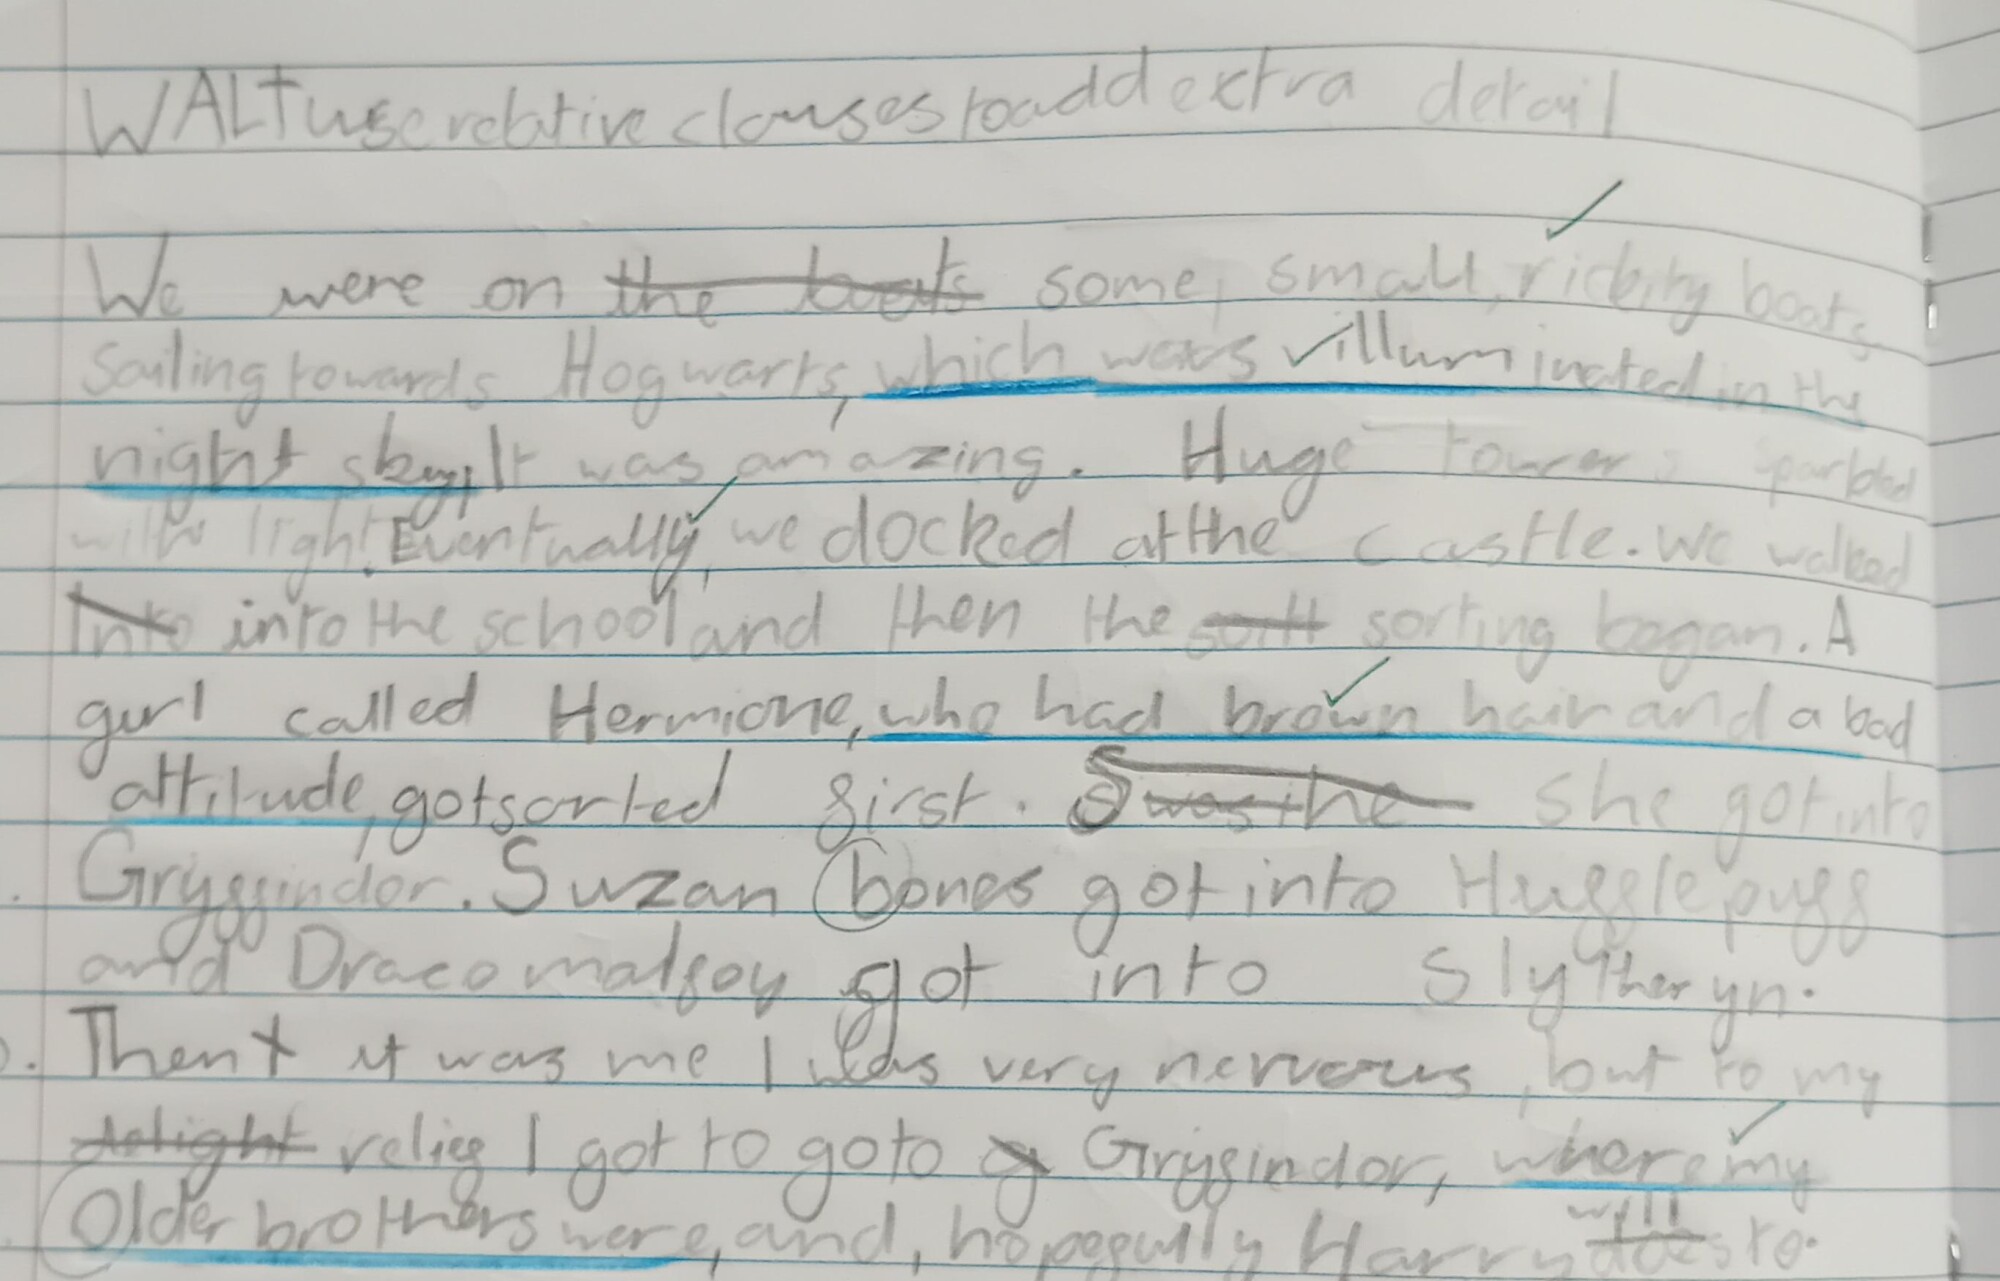 WALT use relative clauses to add extra detail
We were on the boats some, small, rickity boats
Sailing towards Hogwarts, which was illuminated in the
night sky, It was amazing. Huge towers sparkled
with light. Eventually, we docked at the castle. We walked
Into into the school and then the sortt sorting began. A
gurl called Hermione, who had brown hair and a bad
attitude, got sorted first. S was the she got into
Gryffindor. Suzan bones got into Hufflepuff
and Draco malfoy got into Slytheryn.
Then it was me I was very nervous, but to my
delight relief I got to go to g Gryfindor, where my
Older brothers were, and, hopefully Harry does will to.